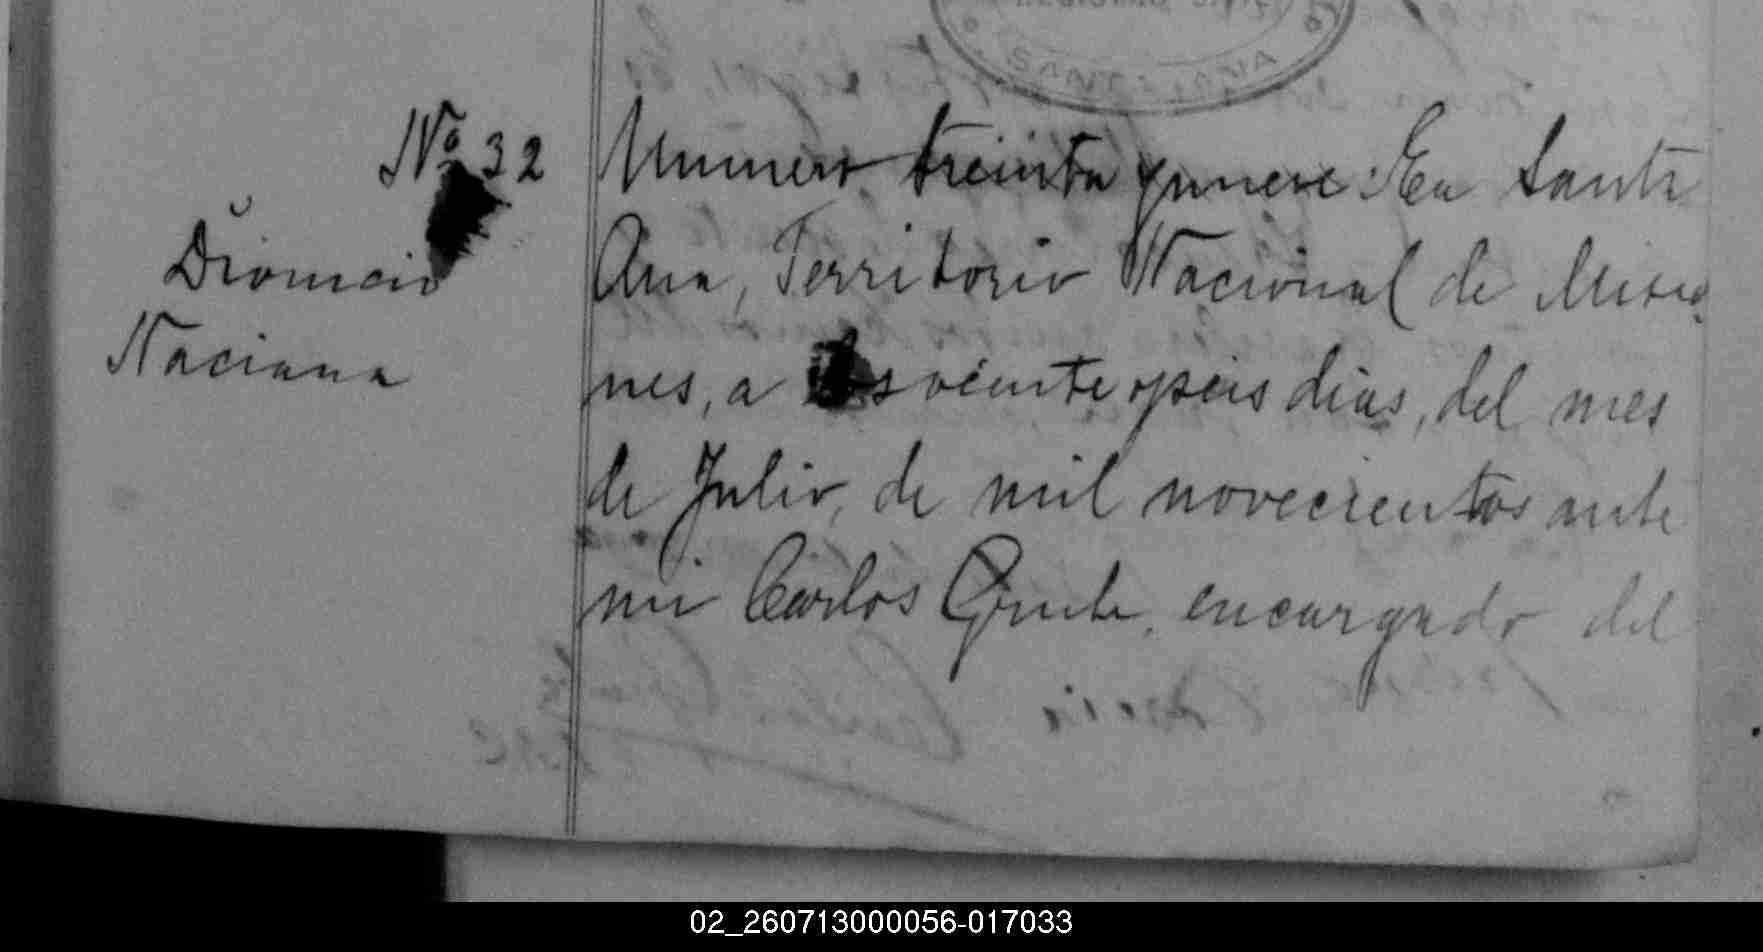 SANTA ANA
Nº 32
Dionicio
Naciana
Numero treinta y nueve: En Santa
Ana, Territorio Nacional de Misio
nes, a los veinte y seis dias, del mes
de Julio, de mil novecientos ante
mi Carlos encargado del
02_260713000056-017033